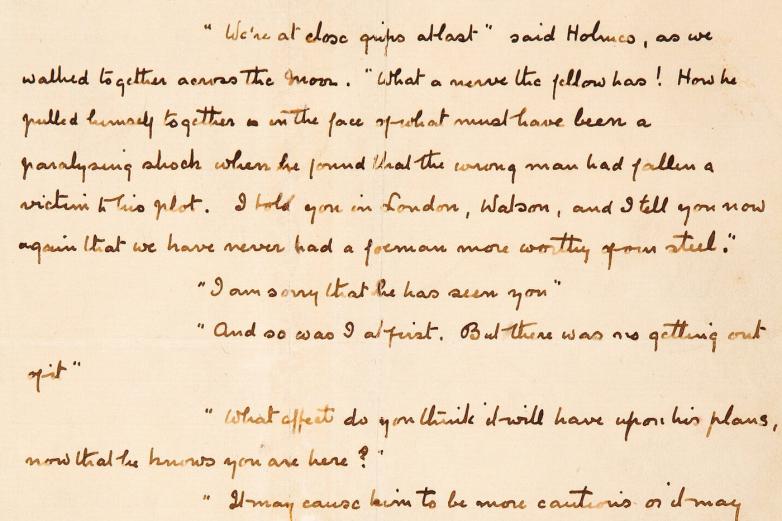 " We're at close grips at last " said Holmes, as we
walked together across the moor. " What a nerve the fellow has! How he
pulled himself together in the face of what must have been a
paralysing shock when he found that the wrong man had fallen a
victim to his plot. I told you in London, Watson, and I tell you now
again that we have never had a foeman more worthy of our steel."
" I am sorry that he has seen you "
" And so was I at first. But there was no getting out
of it "
" What effect do you think it will have upon his plans,
now that he knows you are here? "
" It may cause him to be more cautious or it may